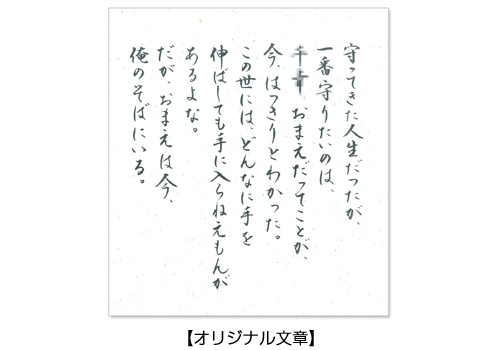 守ってきた人生だったが、
一番守りたいのは、
おまえだってことが、
今、はっきりとわかった。
この世には、どんなに手を
伸ばしても手に入らねえもんが
あるよな。
だが、おまえは今、
俺のそばにいる。
【オリジナル文章】